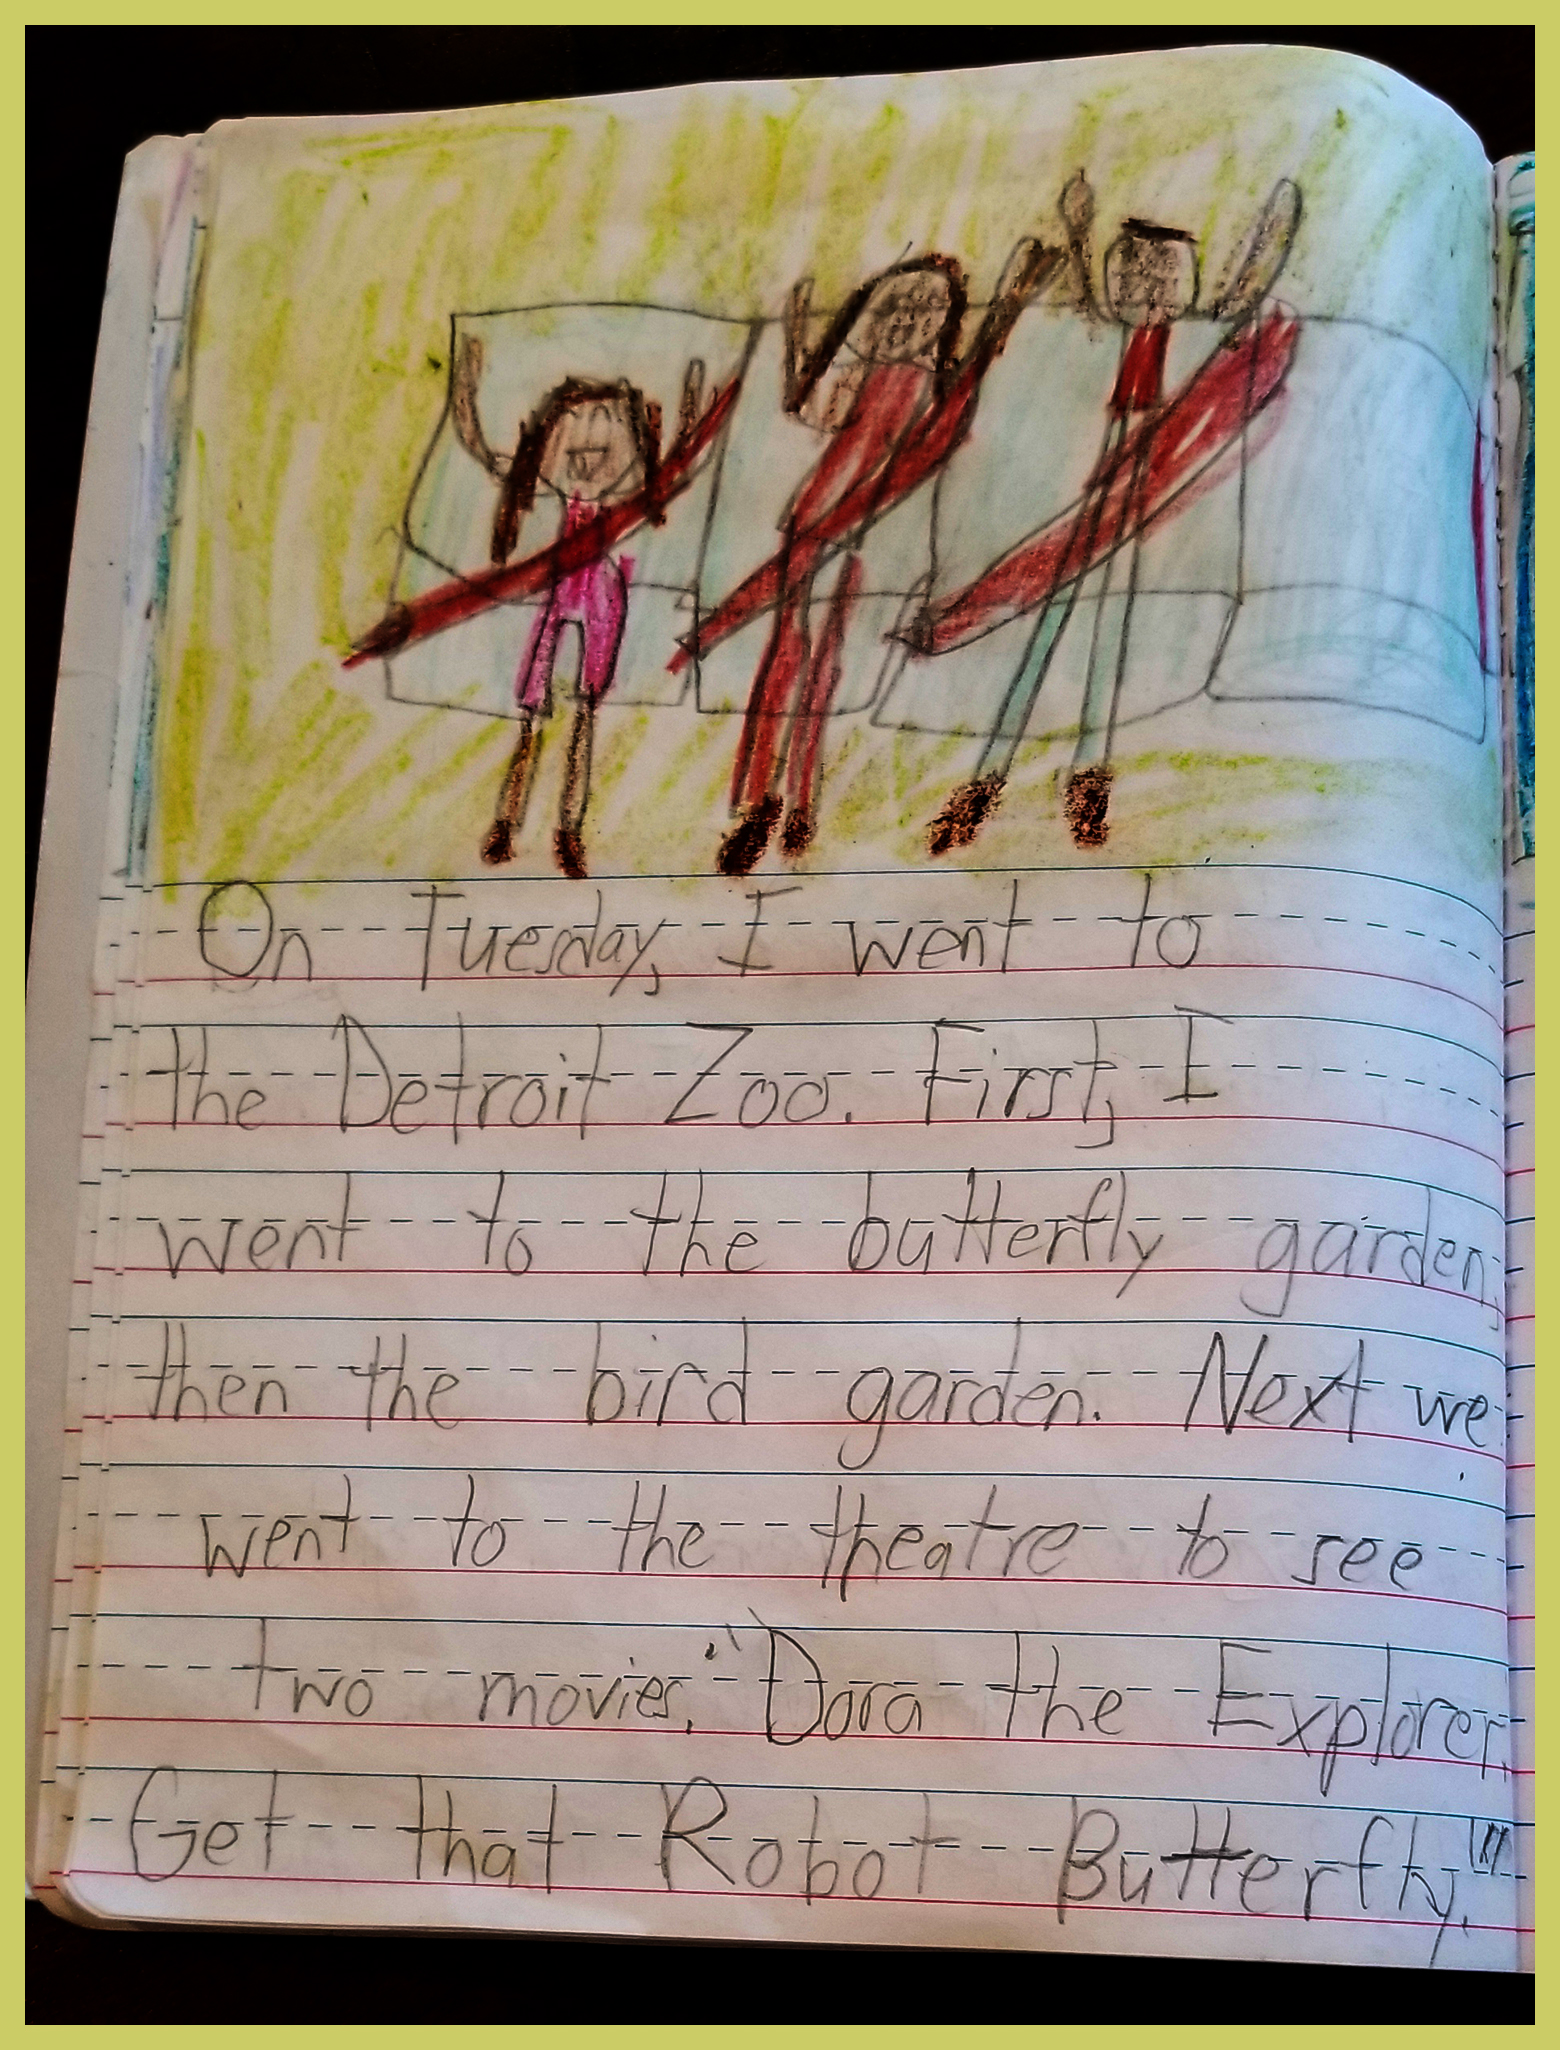 On Tuesday, I went to
the Detroit Zoo. First, I
went to the butterfly garden,
then the bird garden. Next we
went to the theatre to see
two movies. "Dora the Explorer.
Get that Robot Butterfly."